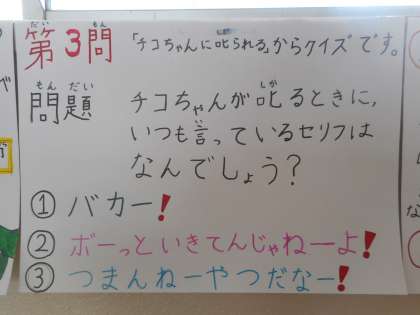 第3問 「チコちゃんに叱られる」からクイズです。
問題 チコちゃんが叱るときに、
いつも言っているセリフは
なんでしょう?
① バカー!
② ボーっといきてんじゃねーよ!
③ つまんねーやつだなー!